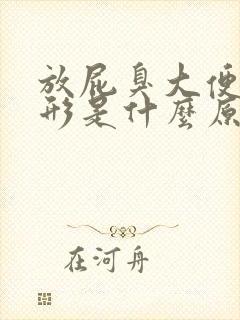 放屁臭大便
形是什麼原
在河舟